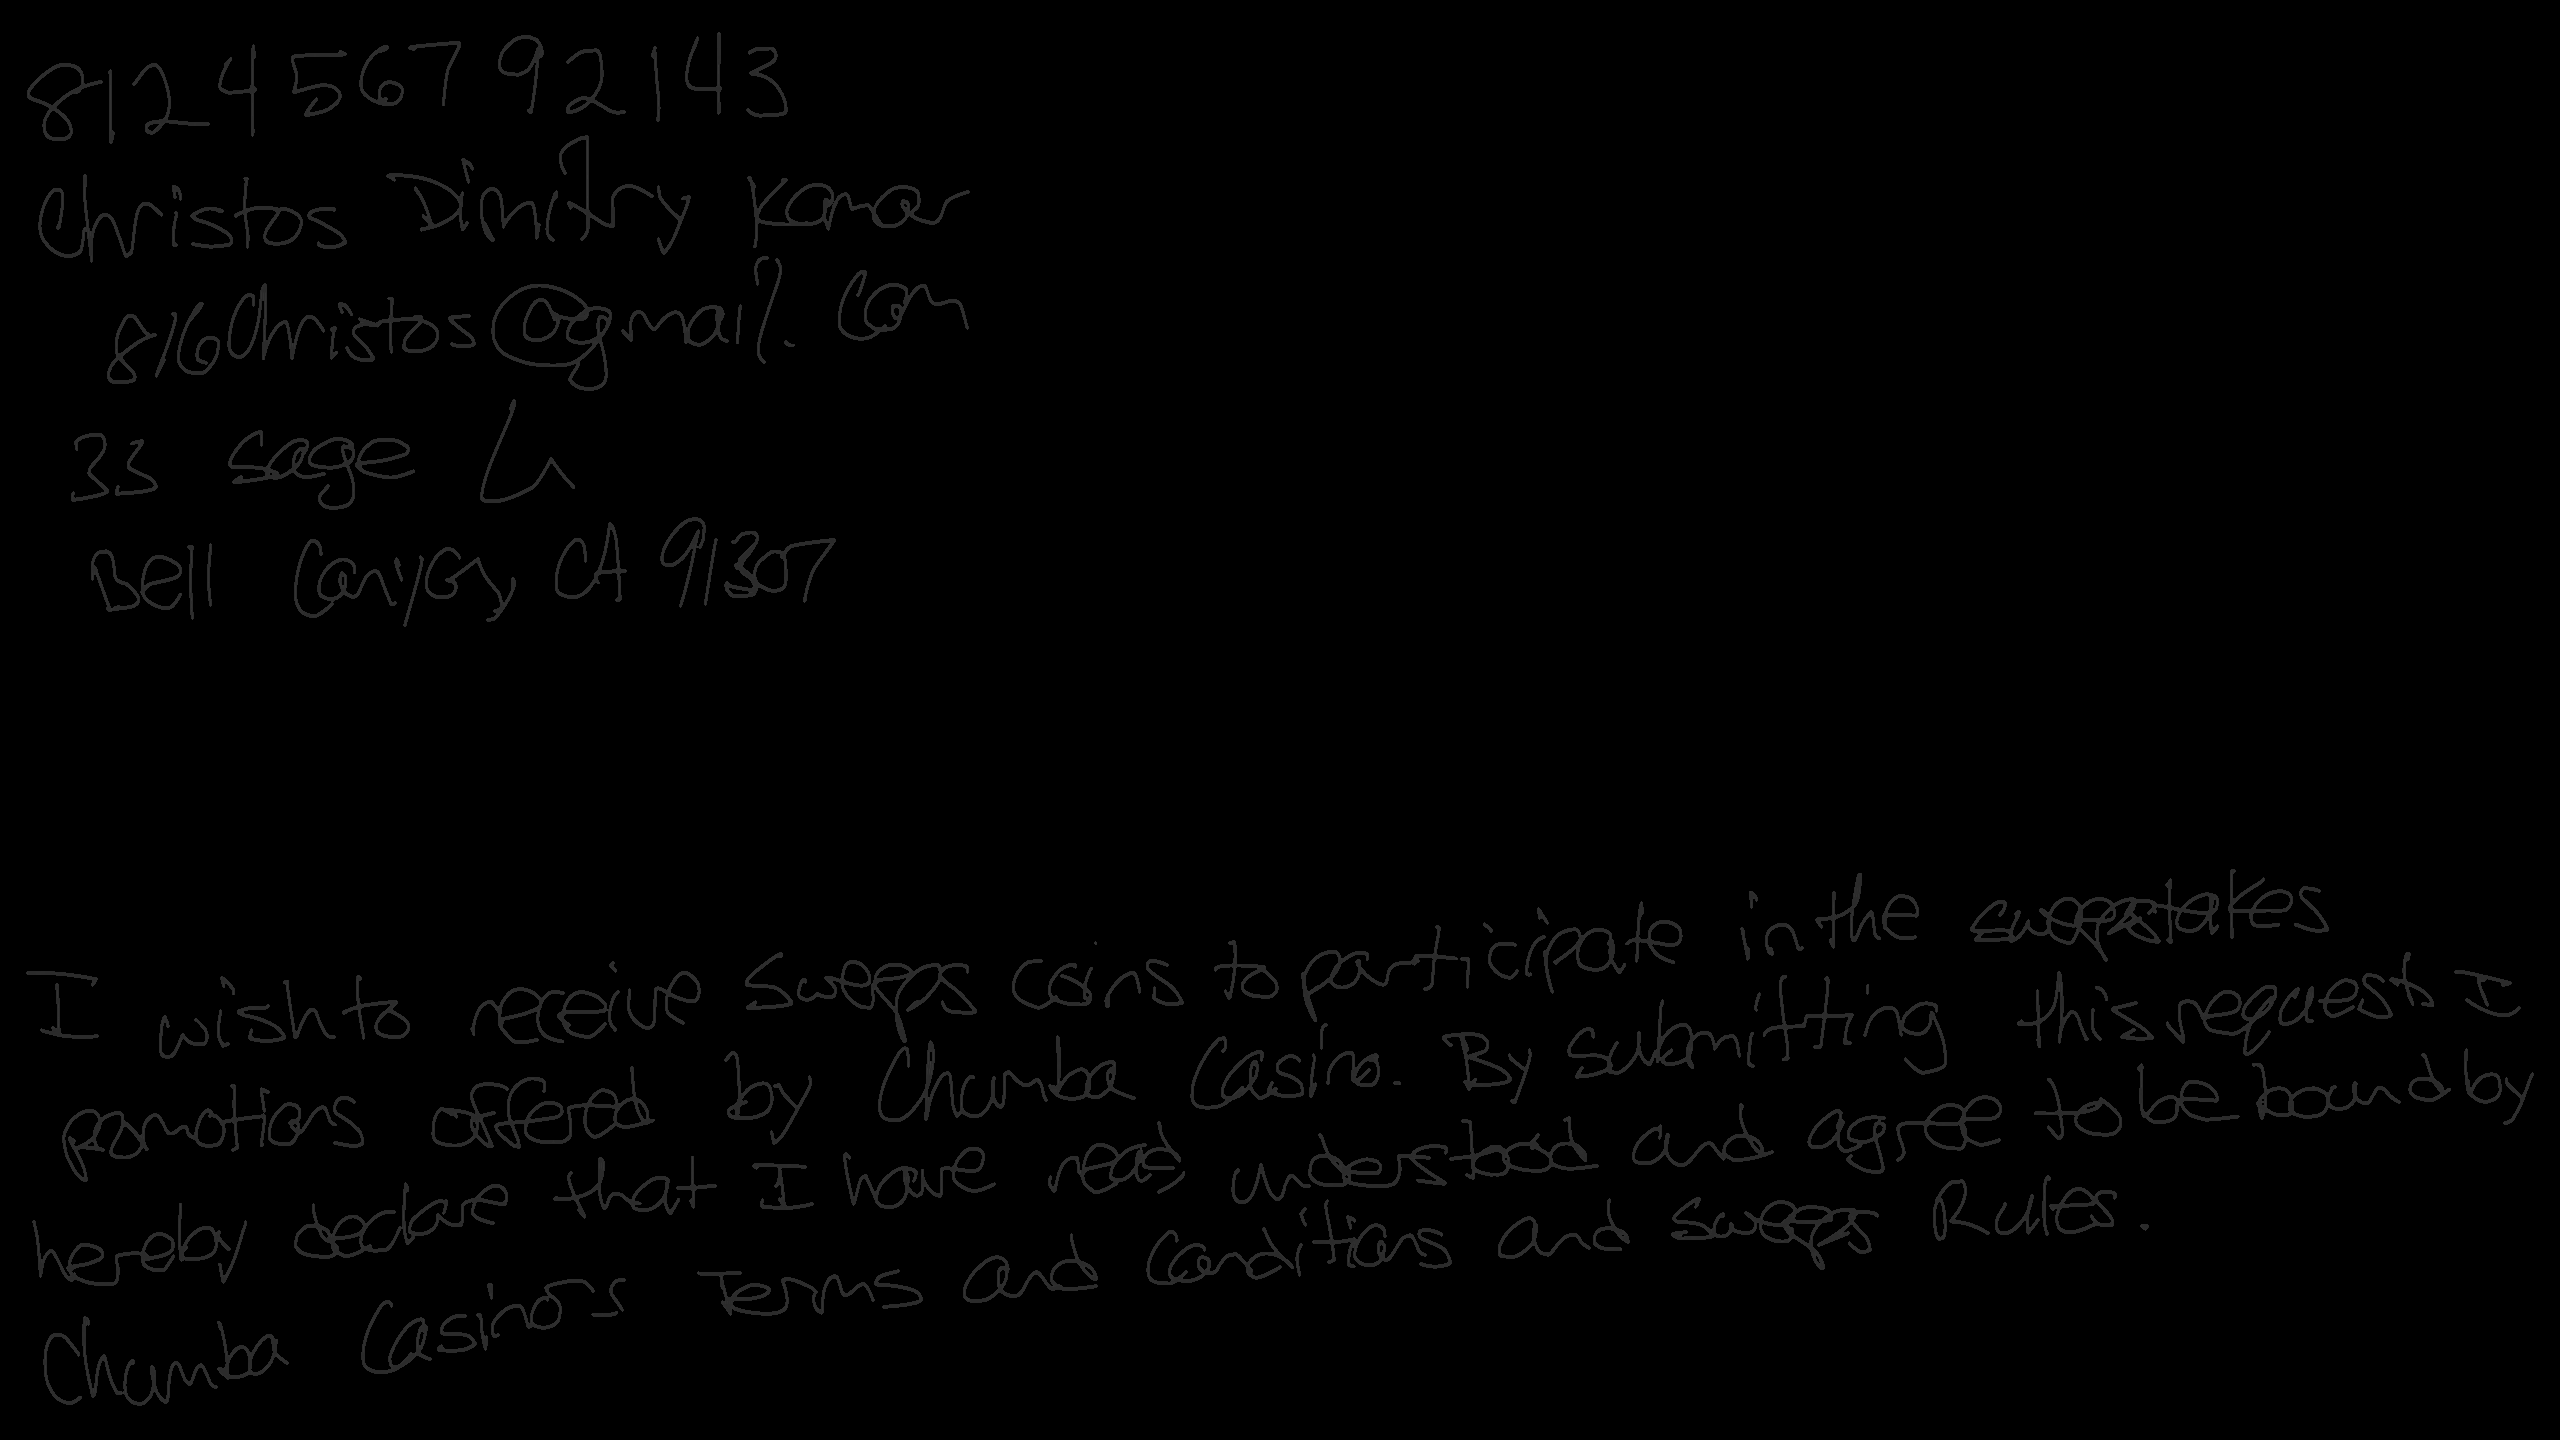 812456792143
Christos Dimitry Kamar
816Christos@gmail.com
33 Sage Ln
Bell Canyon, CA 91307
I wish to receive Sweeps coins to participate in the sweepstakes
promotions offered by Chumba Casino. By submitting this request I
hereby declare that I have read understood and agree to be bound by
Chumba Casino's Terms and Conditions and Sweeps Rules.